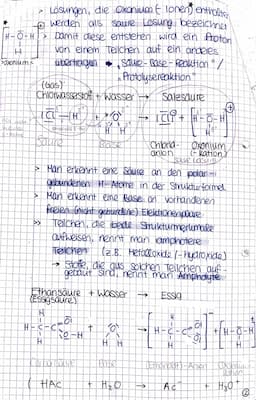 > Lösungen, die Oxonium(-Ionen) enthalten
werden als saure Lösung bezeichnet
> Damit diese entstehen wird ein Proton
von einem Teilchen auf ein anderes
übertragen "Säure-Base-Reaktion"/
"Protolysereaktion"
[H-O-H
H]
"Oxonium"
(Gas)
Chlorwasserstoff + Wasser → Salzsäure
Säure Base Chlorid- Oxonium
anion (-kation)
> Man erkennt eine Säure an den polar
gebundenen H-Atome in der Strukturformel
> Man erkennt eine Base an vorhandenen
freien (nicht gebundene) Elektronenpaare
>> Teilchen, die beide Strukturmerkmale
aufweisen, nennt man amphotere
Teilchen (z.B. Metalloxide/-hydroxide)
→ Stoffe, die aus solchen Teilchen auf-
gebaut sind, nennt man Ampholyte
Ethansäure + Wasser → Essig
(Essigsäure)
Base
(HAc + H₂O → Ac⁻ + H₃O⁺